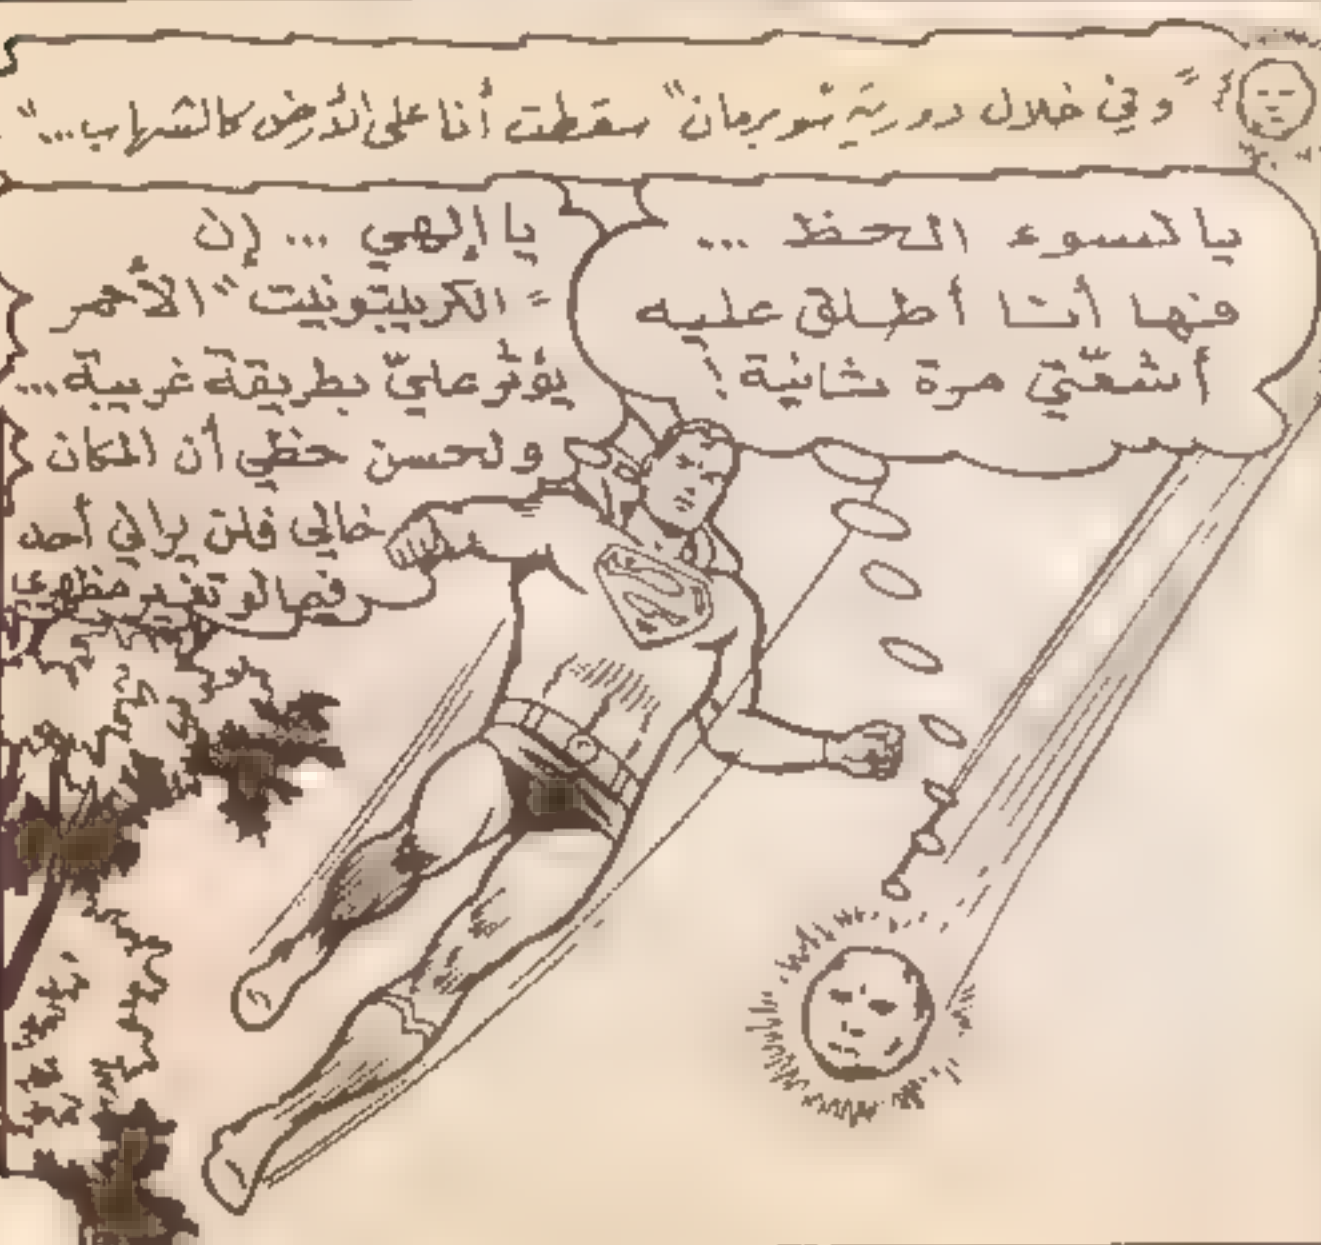 "وفي خلال دورية سوبرمان" سقطت أنا على الأرض كالشهاب..."
يا لسوء الحظ ...
فها أنا أطلق عليه
أشعّتي مرة ثانية!
يا إلهي ... إن
"الكريبتونيت" الأحمر
يؤثر عليّ بطريقة غريبة...
ولحسن حظي أن المكان
خالي فلن يراني أحد
فيما لو تغير مظهري